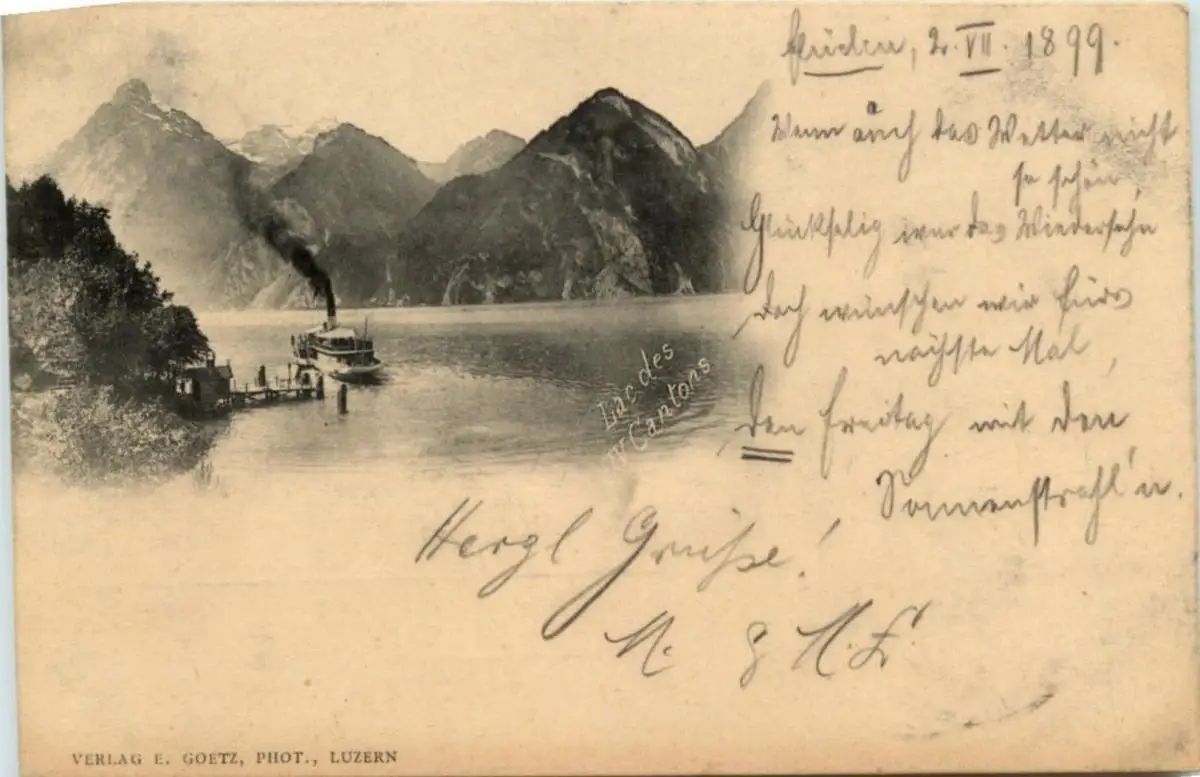 Flüelen, 2. VII. 1899.
Wenn auch das Wetter nicht
so schön,
Glückselig war das Wiedersehn
Doch wünschen wir fürs
nächste Mal,
Den Freitag mit den
Sonnenstrahl'n.
Herzl Grüße!
M.
Lac des
IV Cantons.
VERLAG E. GOETZ, PHOT., LUZERN